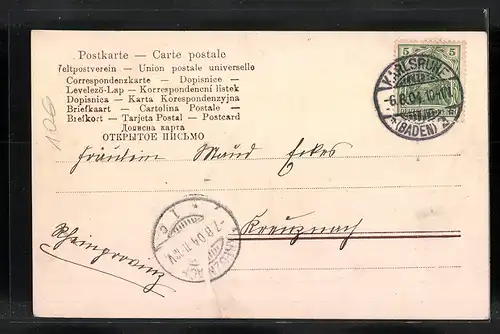 Postkarte — Carte postale
Weltpostverein — Union postale universelle
Correspondenzkarte — Dopisnice —
Levelező-Lap — Korrespondencní listek
Dopisnica — Karta Korespondenzyjna
Briefkaart — Cartolina Postale —
Brefkort — Tarjeta Postal — Postcard
Дописна карта
ОТКРЫТОЕ ПИСЬМО
5 5
KARLSRUHE
-6.8.04. 10-11
* (BADEN) 2
106
Fräulein Maud Erkes
Kreuznach
Rheinprovinz
-7.8.04. 11-12V.